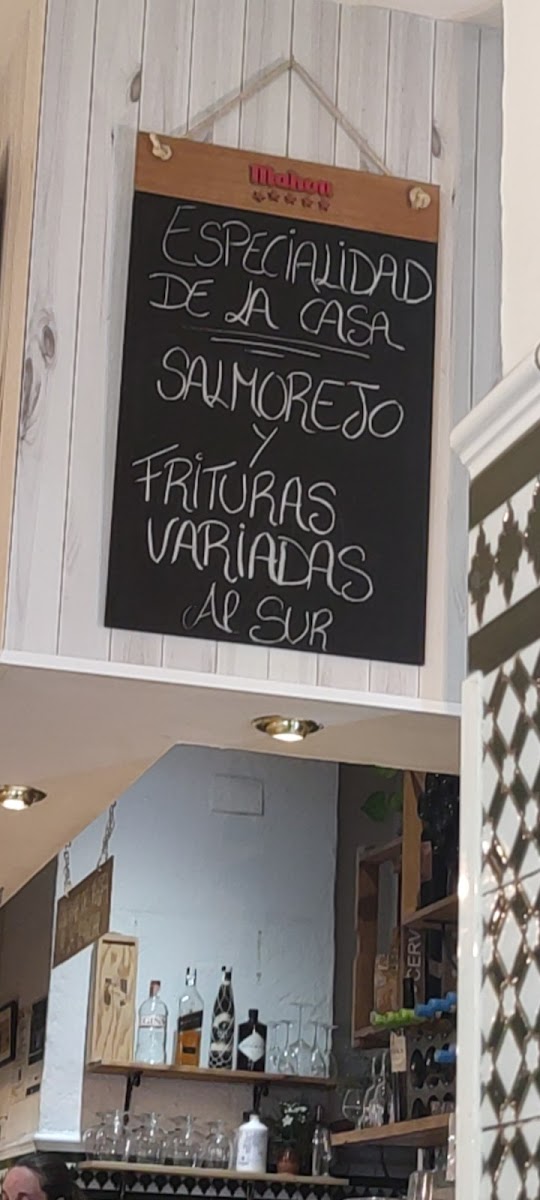 Mahou
ESPECIALIDAD
DE LA CASA
SALMOREJO
Y
FRITURAS
VARIADAS
AL SUR
CERV